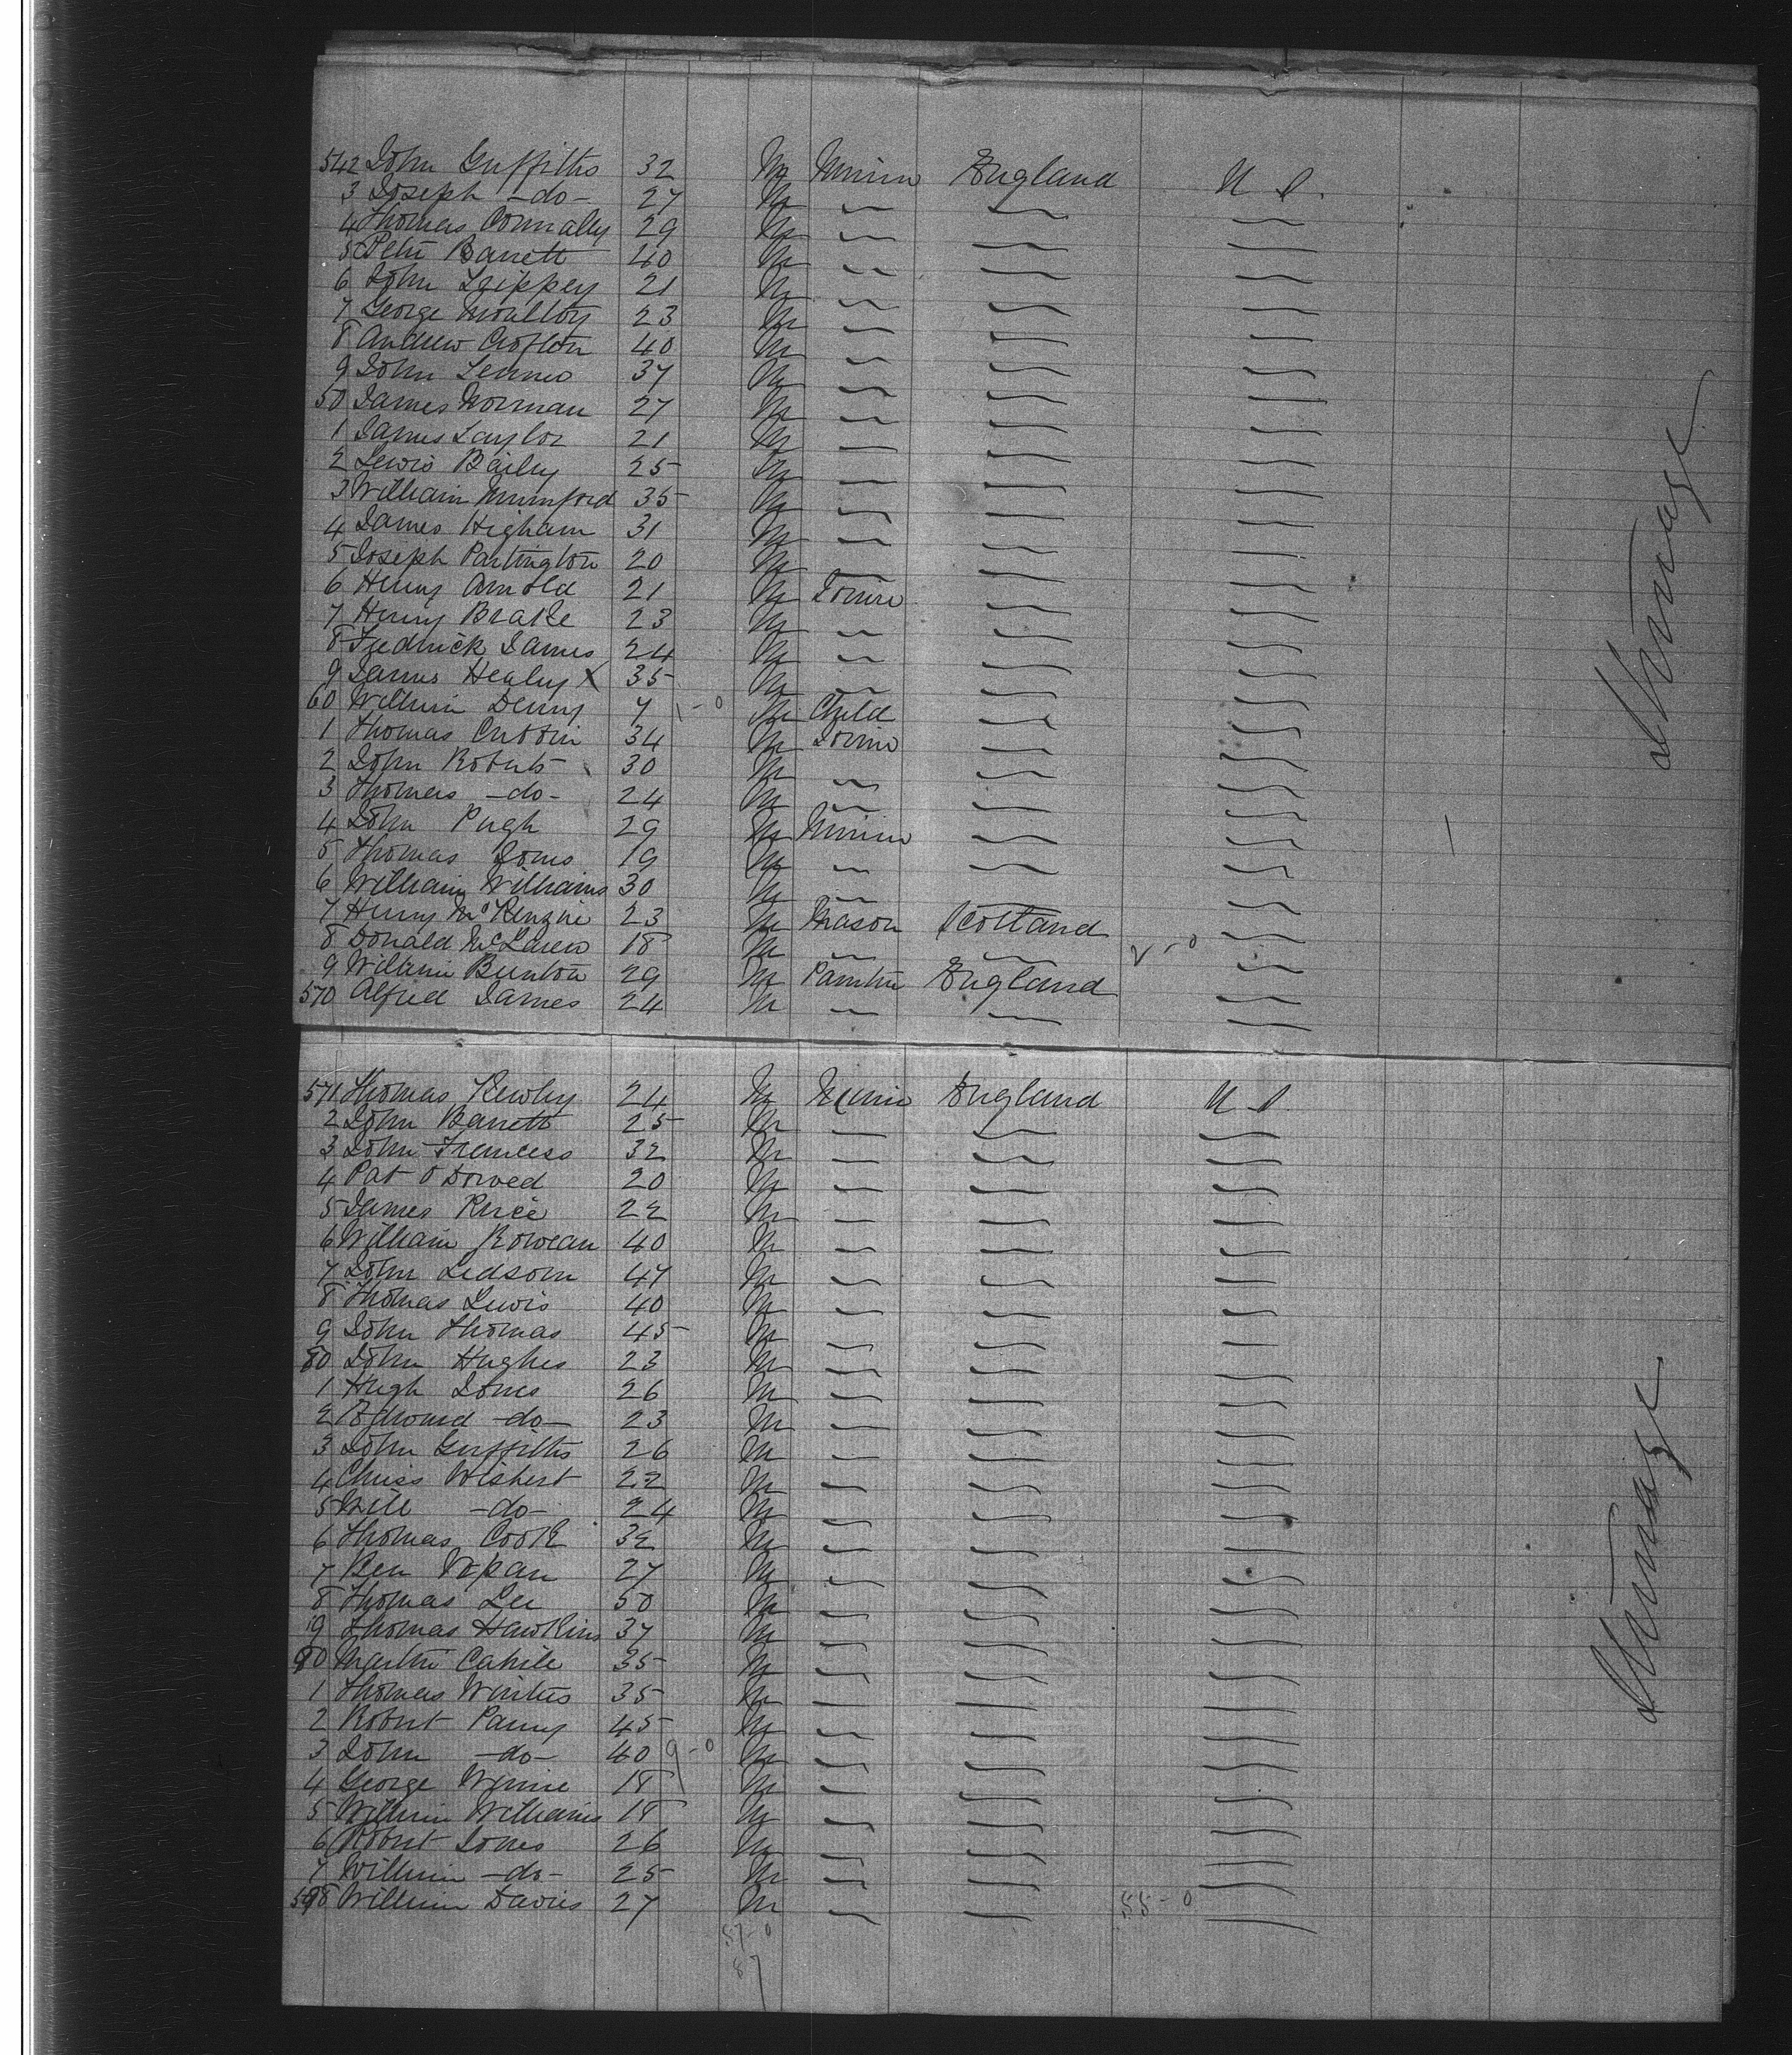 542 John Griffiths 32 M Miner England U S.
3 Joseph -do- 27 M
4 Thomas Connally 29 M
5 Peter Barrett 40 M
6 John Leippey 21 M
7 George Moulton 23 M
8 Andrew Crofton 40 M
9 John 37 M
50 James Norman 27 M
1 James Taylor 21 M
2 Lewis Baily 25 M
3 William Mumford 35 M
4 James Higham 31 M
5 Joseph Partington 20 M
6 Henry Arnold 21 M
7 Henry Brake 23 M
8 Fredrick James 24 M
9 James Healy X 35 M
60 William Denny 7 1-0 M Child
1 Thomas 34 M
2 John Roberts 30 M
3 Thomas -do- 24 M
4 John Pugh 29 M Miner
5 Thomas Jones 19 M
6 William Williams 30 M
7 Henry McKenzie 23 M Mason Scotland
8 Donald McLaren 18 M 2-0
9 William Bunton 29 M Painter England
570 Alfred James 24 M
Steerage
571 Thomas Kewley 24 M Miner England U S
2 John Barrett 25 M
3 John Francess 32 M
4 Pat O Dowed 20 M
5 James Price 22 M
6 William Rowean 40 M
7 John Ledsom 47 M
8 Thomas Lewis 40 M
9 John Thomas 45 M
80 John Hughes 23 M
1 Hugh Jones 26 M
2 Edward -do- 23 M
3 John Griffiths 26 M
4 Chriss Wishert 22 M
5 Will -do- 24 M
6 Thomas Cook 32 M
7 Ben 27 M
8 Thomas Lee 50 M
9 Thomas Hawkins 37 M
90 Martin Cahile 35 M
1 Thomas Winters 35 M
2 Robert Parry 45 M
3 John -do- 40 9-0 M
4 George Winnie 18 M
5 William Williams 18 M
6 Robert Jones 26 M
7 William -do- 25 M
598 William Davies 27 M 55-0
57-0
87
Steerage